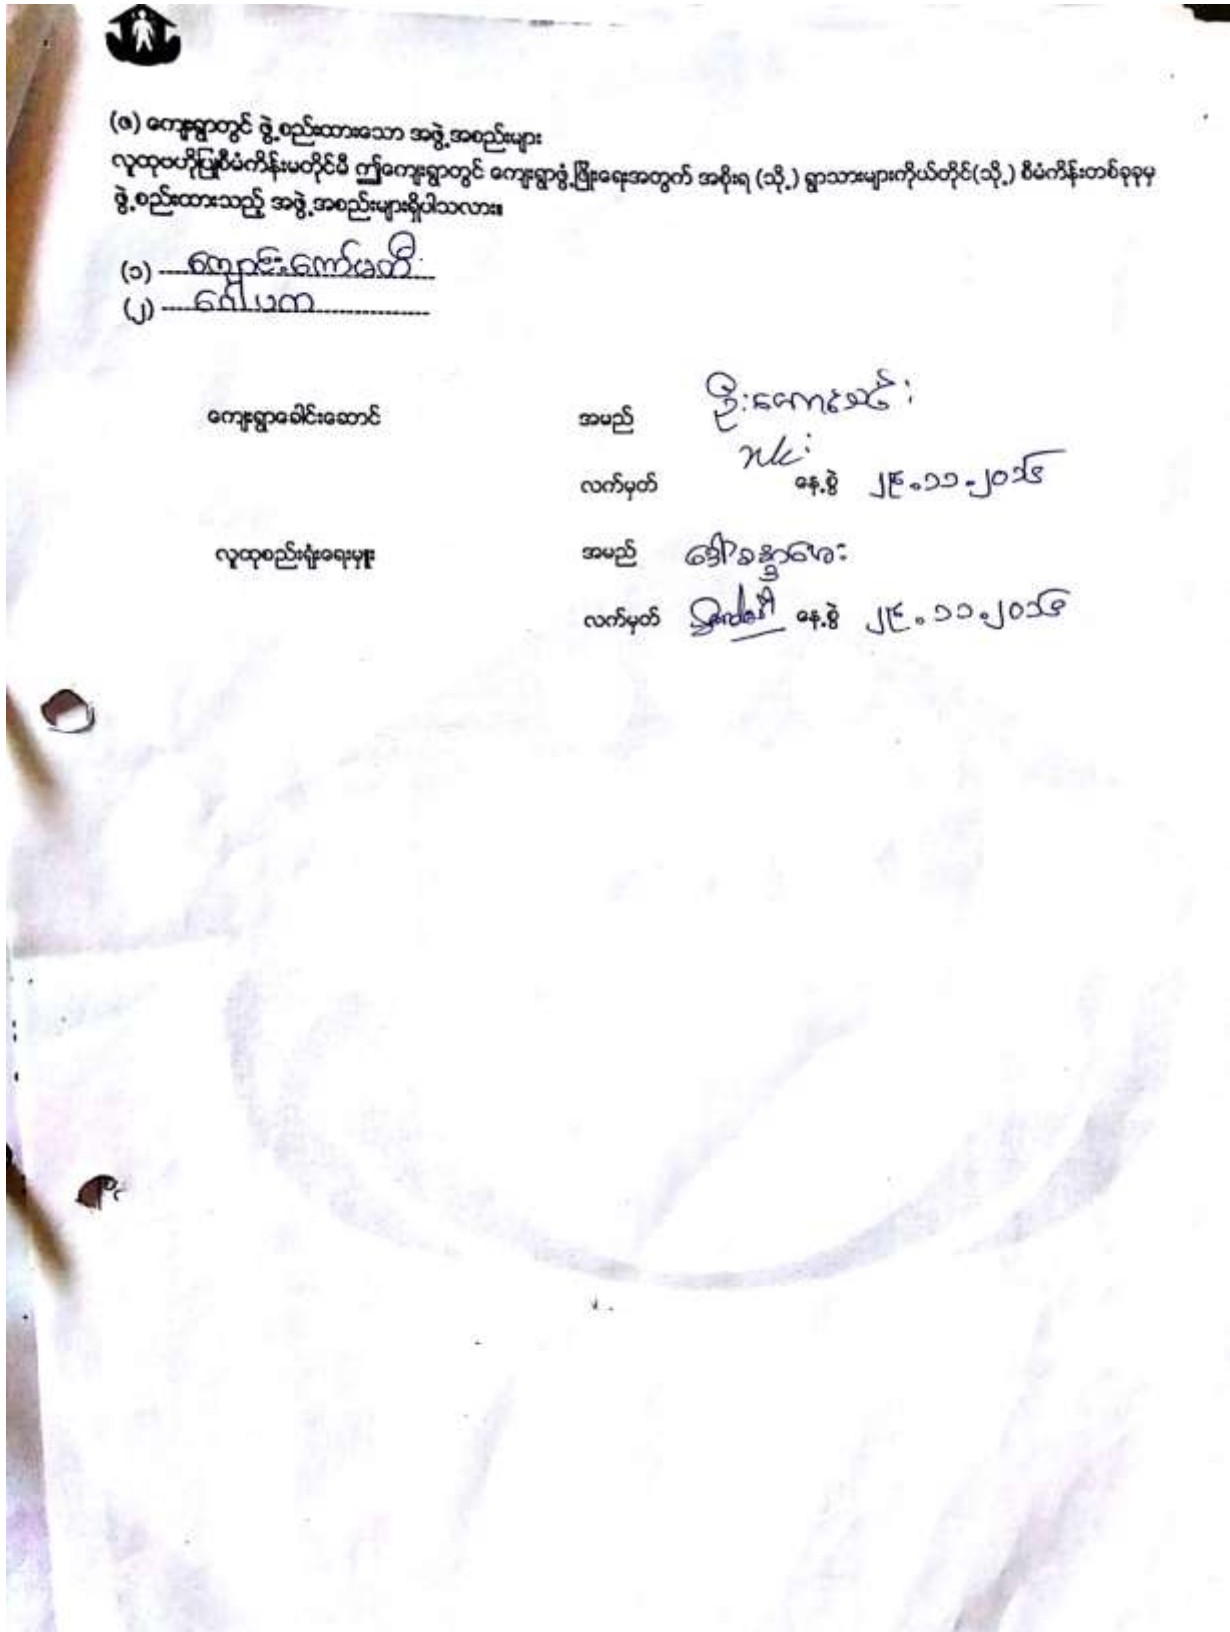 (ဇ) ကျေးရွာတွင် ဖွဲ့စည်းထားသော အဖွဲ့အစည်းများ
လူထုဗဟိုပြုစီမံကိန်းမတိုင်မီ ဤကျေးရွာတွင် ကျေးရွာဖွံ့ဖြိုးရေးအတွက် အစိုးရ (သို့) ရွာသားများကိုယ်တိုင်(သို့) စီမံကိန်းတစ်ခုခုမှ
ဖွဲ့စည်းထားသည့် အဖွဲ့အစည်းများရှိပါသလား။
(၁) ကျောင်းကော်မတီ
(၂) ဂေါပက
ကျေးရွာခေါင်းဆောင် အမည် ဦး
လက်မှတ် နေ့စွဲ ၂၄.၁၁.၂၀၁၆
လူထုစည်းရုံးရေးမှူး အမည် ဒေါ်ခန္တာအေး
လက်မှတ် နေ့စွဲ ၂၄.၁၁.၂၀၁၆